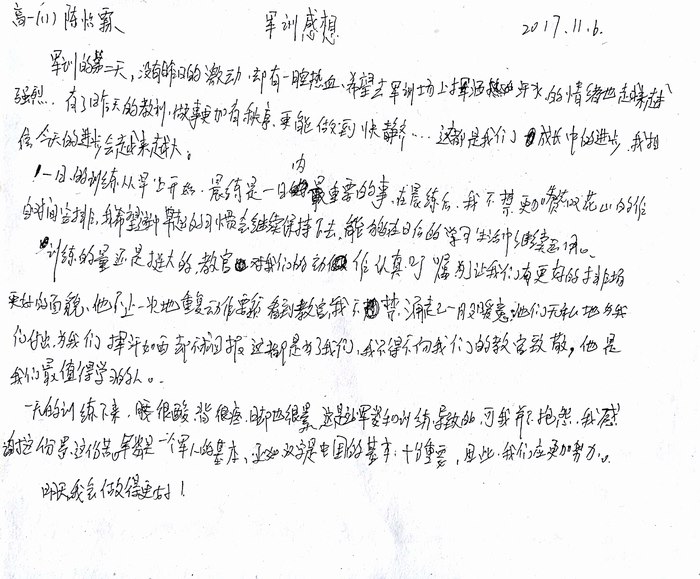 高一(1) 陈怡霖 军训感想 2017.11.6.
军训的第二天,没有昨日的激动,却有一腔热血,希望去军训场上挥洒热血汗水的情绪也越来越
强烈.有了昨天的教训,做事更加有秩序,更能做到快静齐…这都是我们成长中的进步,我相
信今天的进步会越来越大。
一日的训练从早上开始.晨练是一日内最重要的事,在晨练后,我不禁更加喜欢花山的作
息时间安排,我希望这早起的习惯会继续保持下去,能够在日后的学习生活中继续
训练的量还是挺大的,教官对我们的动作认真叮嘱,让我们有更好的排场
更好的面貌,他不止一次地重复动作要领,看到教官我不禁涌起一月又暖意,他们无私地为我
们付出,为我们挥汗如雨却不求回报,这都是为了我们,我不得不向我们的教官致敬,他是
我们最值得学习的人。
一天的训练下来,腰很酸,背很疼,脚也很累,这是让军姿和训练导致的,可我并不抱怨,我感
谢这份苦,这份苦.军姿是一个军人的基本,正如汉字是中国的基本,十分重要,因此,我们应更加努力。
明天我会做得更好!